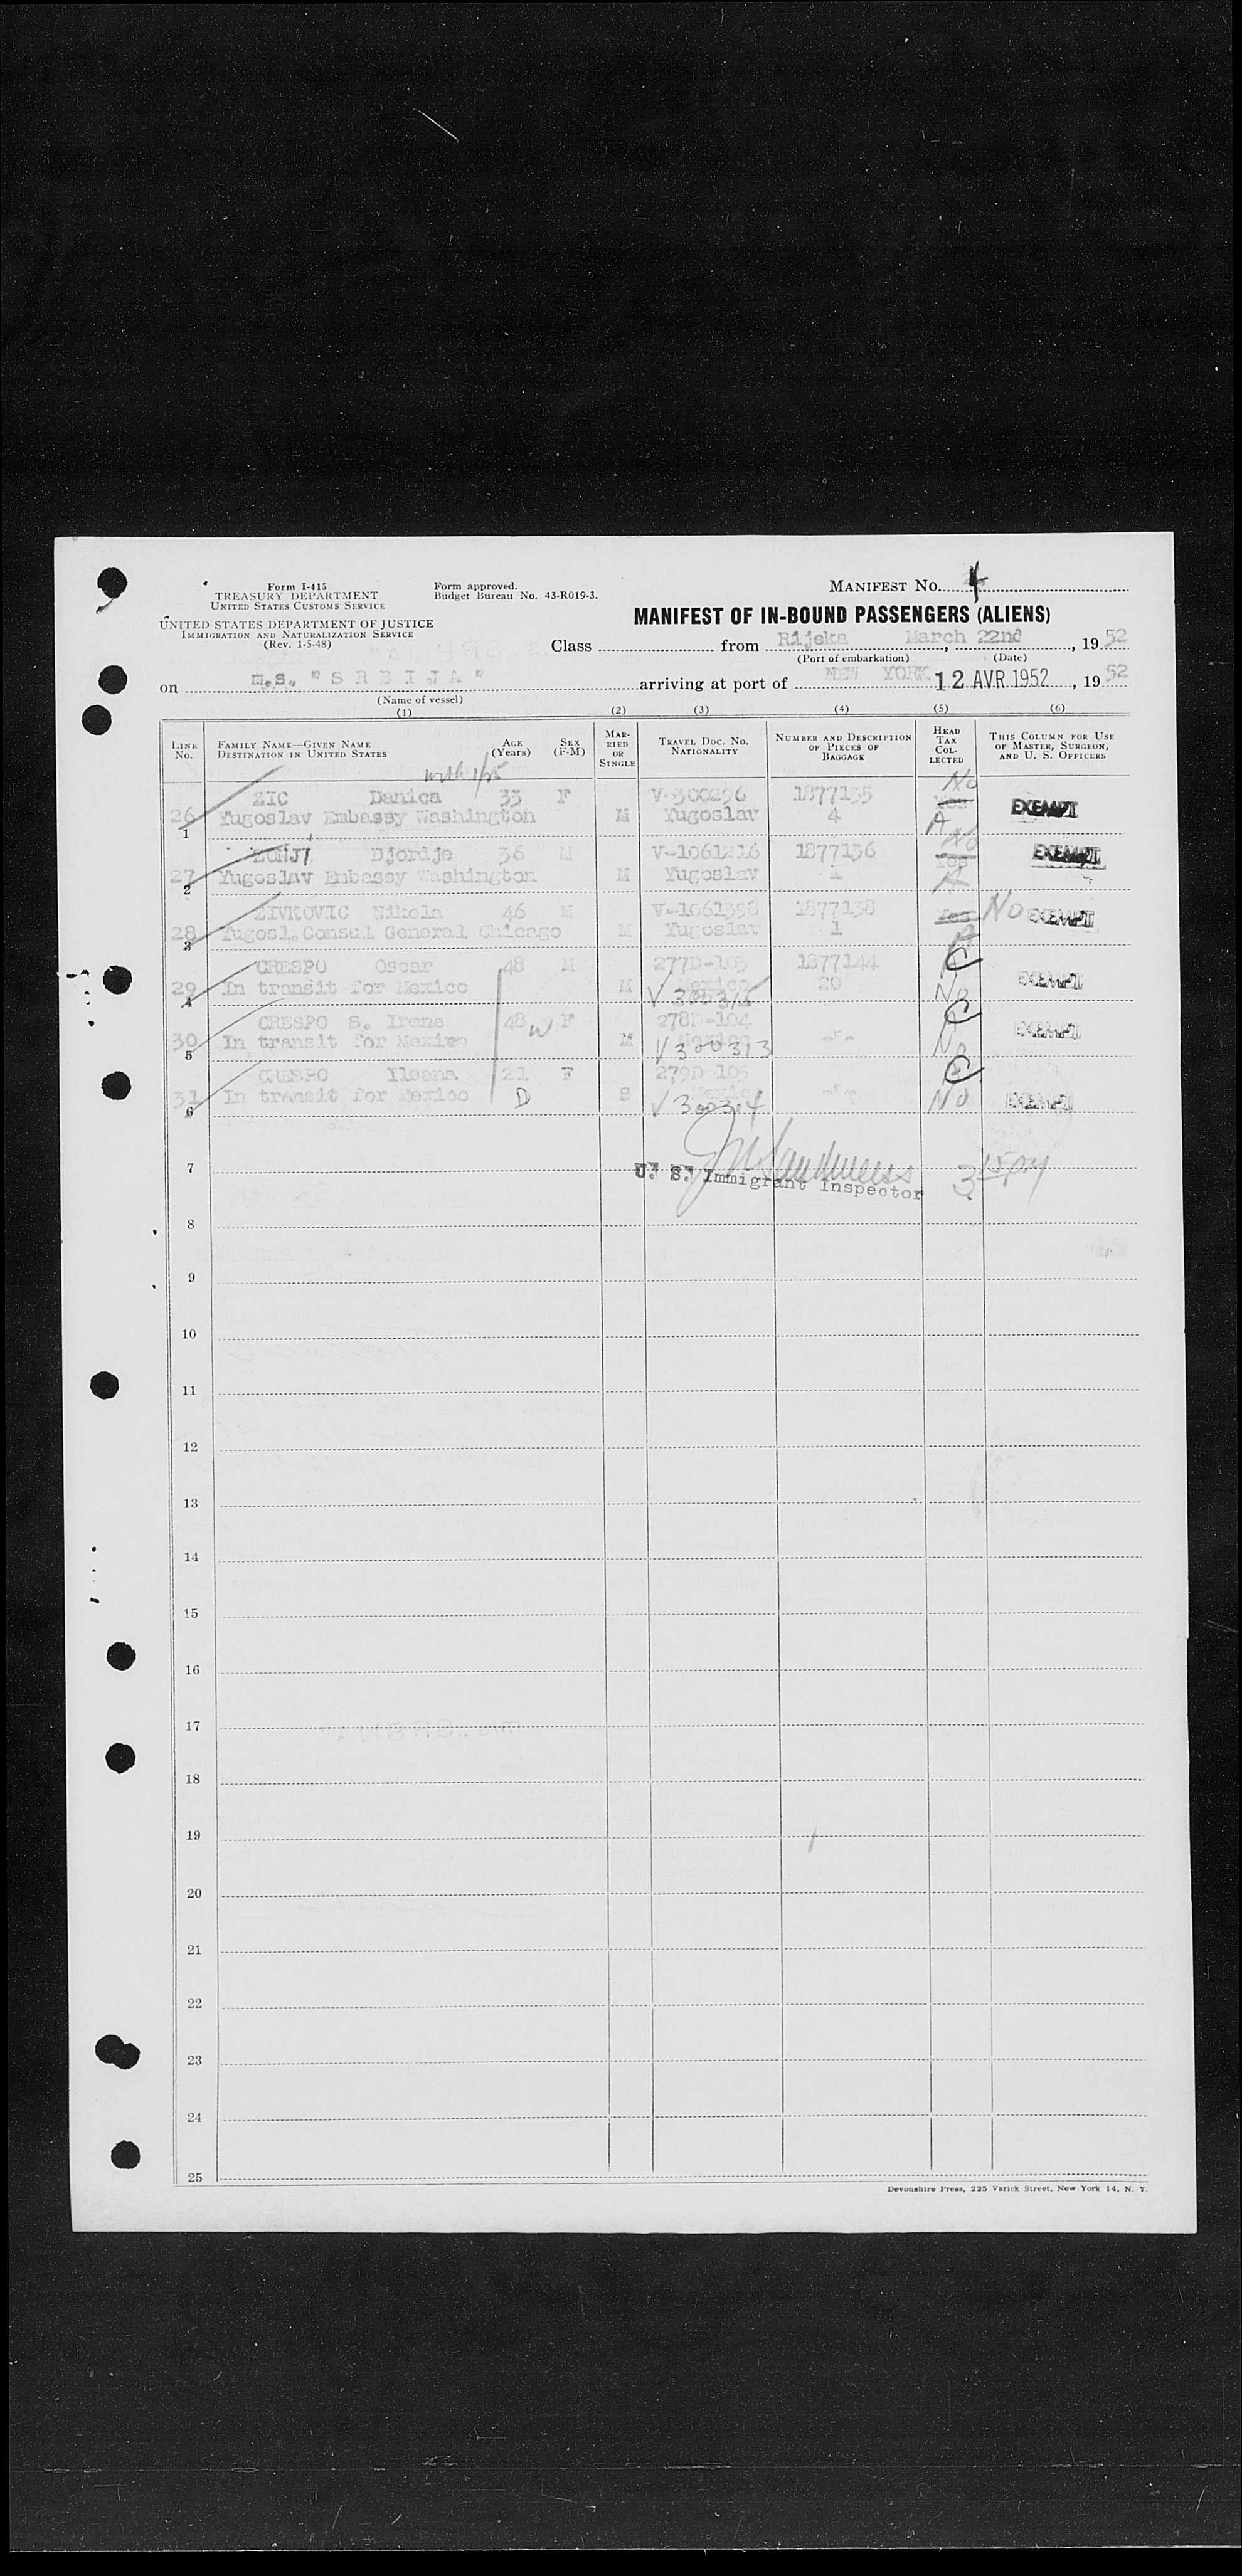 Form I-415
TREASURY DEPARTMENT
UNITED STATES CUSTOMS SERVICE
UNITED STATES DEPARTMENT OF JUSTICE
IMMIGRATION AND NATURALIZATION SERVICE
(Rev. 1-5-48)
Form approved.
Budget Bureau No. 43-R019-3.
MANIFEST NO. 4
MANIFEST OF IN-BOUND PASSENGERS (ALIENS)
Class from Rijeka, March 22nd, 1952
(Port of embarkation) (Date)
on m.s. "SRBIJA" arriving at port of NEW YORK 12 AVR 1952, 1952
(Name of vessel)
(1) (2) (3) (4) (5) (6)
LINE NO. FAMILY NAME—GIVEN NAME DESTINATION IN UNITED STATES AGE (Years) SEX (F-M) MARRIED OR SINGLE TRAVEL DOC. NO. NATIONALITY NUMBER AND DESCRIPTION OF PIECES OF BAGGAGE HEAD TAX COLLECTED THIS COLUMN FOR USE OF MASTER, SURGEON, AND U. S. OFFICERS
with 1/25 No
ZIC Danica 33 F V-300296 1877135 Yes EXEMPT
26 1 Yugoslav Embassy Washington M Yugoslav 4 A
No
Djordje 36 M V-1061216 1877136 Yes EXEMPT
27 2 Yugoslav Embassy Washington M Yugoslav 1 A
ZIVKOVIC Nikola 46 M V-1061398 1877138 Yes No EXEMPT
28 3 Yugosl. Consul General Chicago M Yugoslav 1 A
CRESPO Oscar 48 M 277D-103 1877144 C
29 4 In transit for Mexico M Mexico 20 No EXEMPT
CRESPO S. Irene 48 W F 278D-104 C EXEMPT
30 5 In transit for Mexico M Mexico V300313 -"- No
CRESPO Ileana 21 F 279D-105 C
31 6 In transit for Mexico D S V300314 -"- No EXEMPT
7 U. S. Immigrant Inspector 3 15 PM
8
9
10
11
12
13
14
15
16
17
18
19
20
21
22
23
24
25
Devonshire Press, 225 Varick Street, New York 14, N. Y.